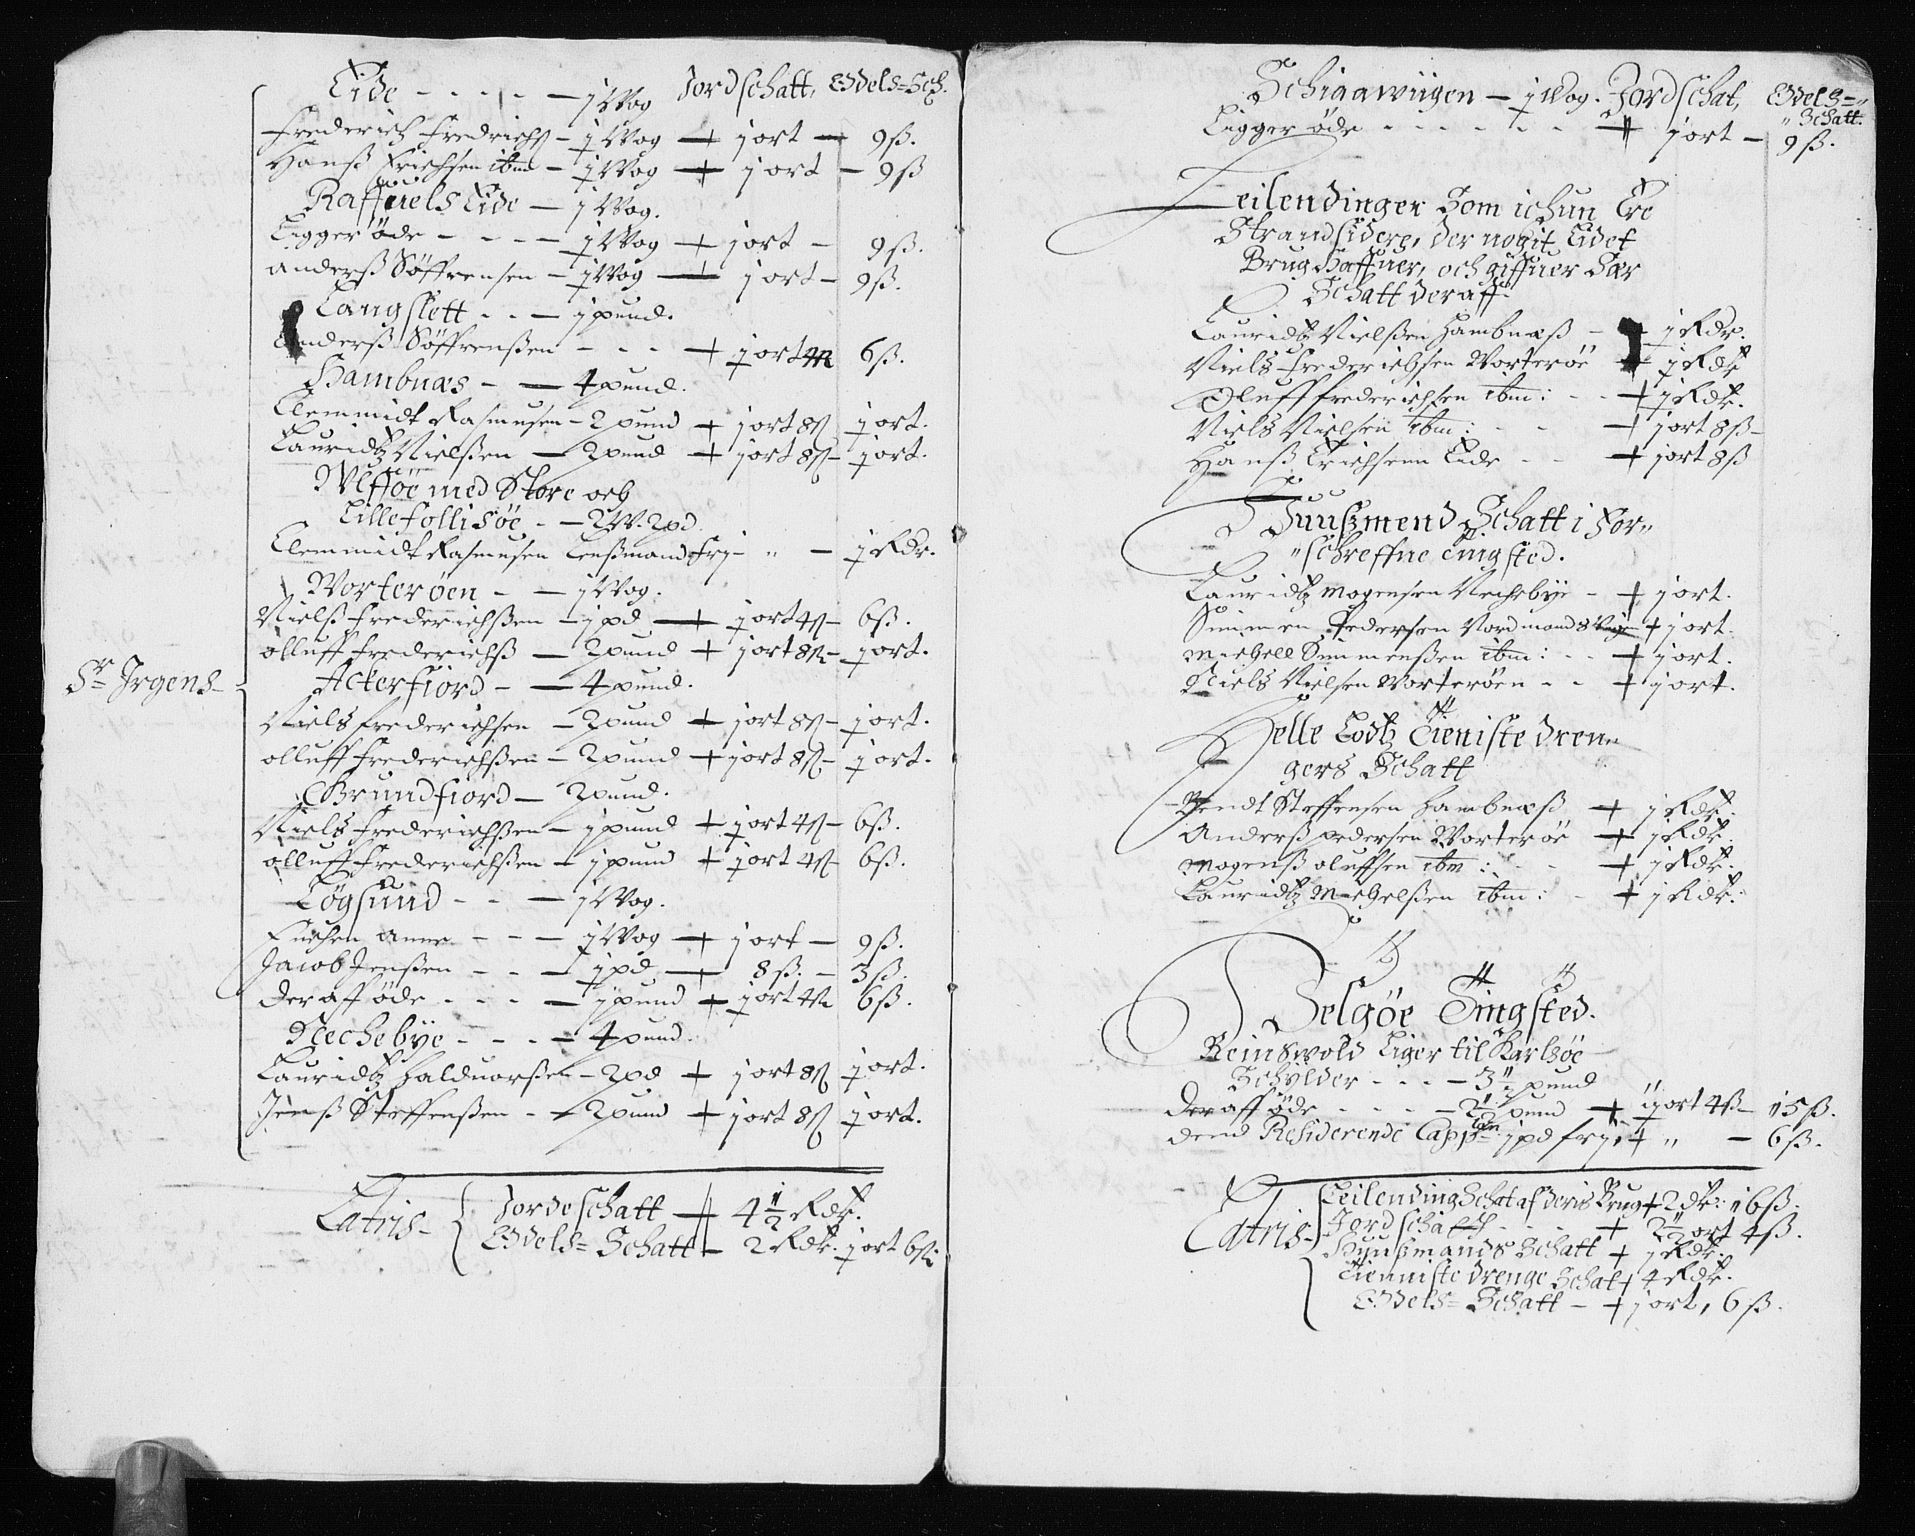 Eide - - - - - j Wog Jordschatt, Odels=Sch.
Frederich Fredrichß - j Wog + j ort - 9 ß.
Hanß Erichsen ibm - j Wog + j ort - 9 ß
Raffuels Eide - j Wog.
Ligger øde - - - - j Wog + j ort - 9 ß.
Anderß Søffrensen - j Wog - j ort - 9 ß.
Langslett - - - j pund.
Anderß Søffrenßen - - - + j ort 4 ß 6 ß.
Hambnæs - - 4 pund.
Clemmidt Rasmusen - 2 pund + j ort 8 ß j ort.
Lauridtz Nielßen - 2 pund + j ort 8 ß - j ort.
Ulfføe med Store och
Lille follisøe - - 2 W. 2 pd.
Clemmidt Rasmusen Lenßmand frj - " - j Rdr.
Worterøen - - j Wog.
Nielß Frederichßen - j pd - j ort 4 ß - 6 ß.
olluff Frederichß - 2 pund + j ort 8 ß - j ort.
Sr Jrgens -
Ackerfiord - - 4 pund.
Niels Frederichsen - 2 pund + j ort 8 ß - j ort.
olluff Frederichßen - 2 pund + j ort 8 ß - j ort.
Grundfiord - 2 pund.
Niels Frederichßen - j pund + j ort 4 ß - 6 ß.
olluff Frederichßen - j pund + j ort 4 ß 6 ß.
Løgsund - - - j Wog.
Enchen Anne - - - j Wog + j ort - 9 ß.
Jacob Jenßen - - - j pd + 8 ß. - 3 ß.
Der af øde - - - - j pund + j ort 4 ß 6 ß.
Nechebye - - - - 4 pund.
Lauridtz Halduorßen - 2 pd + j ort 8 ß j ort.
Jenß Steffenßen - - 2 pund + j ort 8 ß j ort.
Latris - Jordeschatt - 4 1/2 Rdr.
Odels= Schatt - 2 Rdr. j ort 6 ß
Schiaawiigen - j Wog. Jordschat, Odels=
" Schatt.
Ligger øde - - - - - - + j ort - 9 ß.
Leilendinger Som ichun Ere
Strandsidere, der nogit Lidet
Brug Haffuer, och giffuer Sær
Schatt deraff.
Lauridtz Nielßen Hambnæß - + j Rdr.
Niels Frederichsen Worterøe + j Rdr
Oluff frederichsen ibm: - - + j Rdr.
Niels Nielsen ibm: - - - j ort 8 ß -
Hanß Erichsenn Eide - - + j ort 8 ß
Huußmend Schatt i For"
"schreffne tingsted.
Lauridtz Mogensen Nechebye - + j ort.
Simmen Pedersen Nordmands Wiig + j ort.
Michell Simmenßen ibm: - - + j ort.
Niels Nielsen Worterøen - - + j ort.
Helle Lodtz Tieniste dren"
gers Schatt
Bendt Steffensen Hambnæß + j Rdr.
Anderß Pedersen Worterøe + j Rdr.
Mogenß oluffsen ibm: - - + j Rdr.
Lauridtz Michelßen ibm: - + j Rdr.
Helgøe Tingsted.
Reinswold Liger til Karlsøe
Schylder - - - - 3 1/2 pund
Deraff øde - - - - 2 1/2 pund + j ort 4 ß - 15 ß.
Dend Residerende Cappelan j pd frj, + " - 6 ß.
Latris - Leilending Schat af deris Brug + 2 dr: 16 ß.
Jord schatt - - - + 2 1/2 ort 4 ß.
Huußmands Schatt + j Rdr.
Tienniste drenge Schat + 4 Rdr.
Odels= Schatt - + j ort, 6 ß.